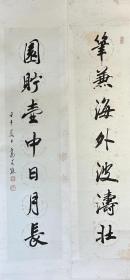 筆兼海外波濤壯
園貯壺中日月長